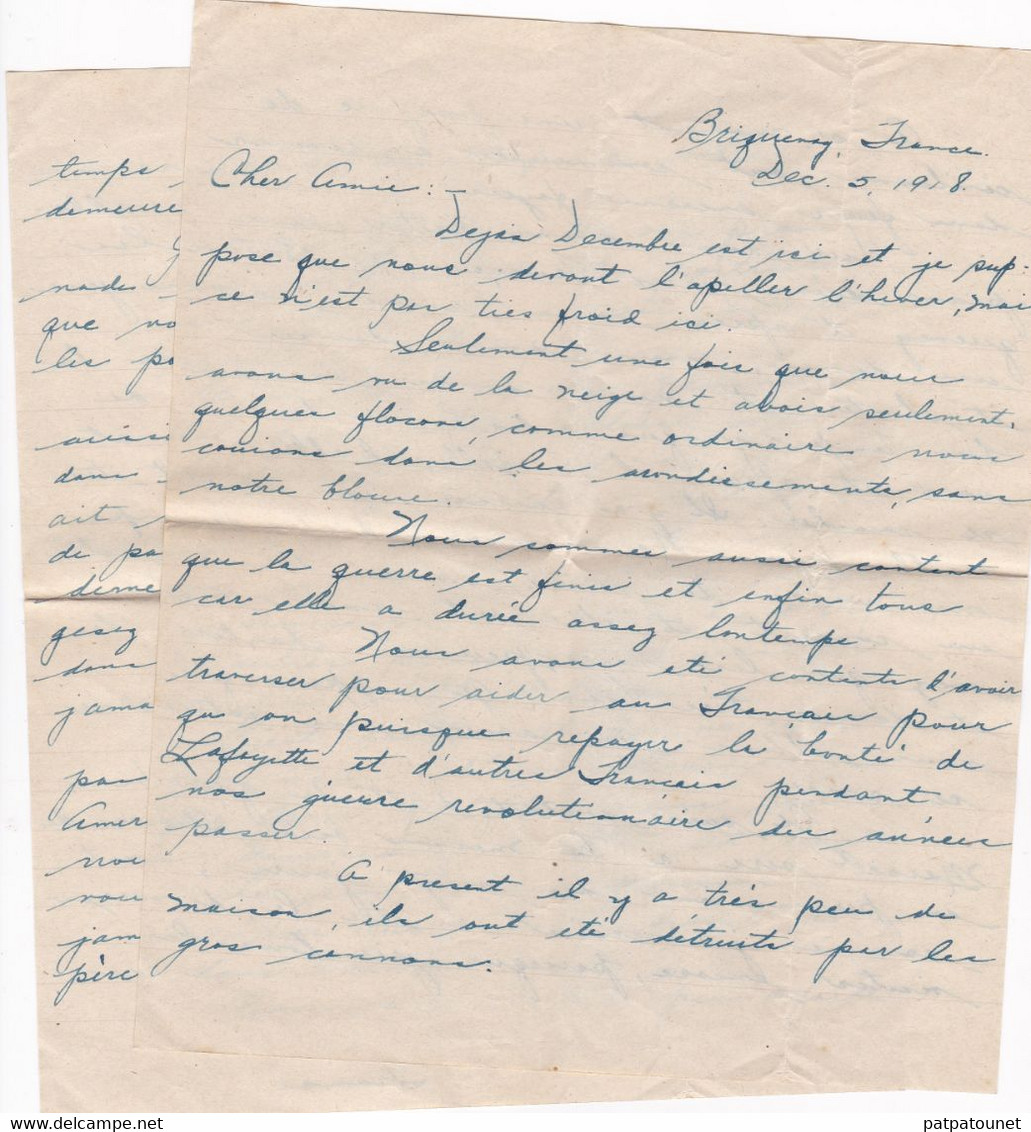 Briquenay, France.
Dec. 5, 1918.
Cher Amie : -
Dejas Decembre est ici et je sup-
pose que nous devont l'apeller l'hiver, mai
ce n'est pas tres froid ici.
Seulement une fois que nous
avons vu de la neige et avois seulement
quelques flocons, comme ordinaire nous
couions dans les arondissements, sans
notre blouse.
Nous sommes aussi content
que la guerre est finis et enfin tous
car elle a durée assez lontemps
Nous avons eté contents d'avoir
traverser pour aider au Français pour
qu on puisque repayer la bonté de
Lafayette et d'autres Francais pendant
nos guerre revolutionnaire des années
passer.
A present il y a trés peu de
maison, ils ont eté détruits par les
gros cannons.
temps
demeure
nade
que
les
aussi
dans
ait
de
gesez
dans
jama
pas
Amer
nou
vou
jam
père
patpatounet
delcampe.net